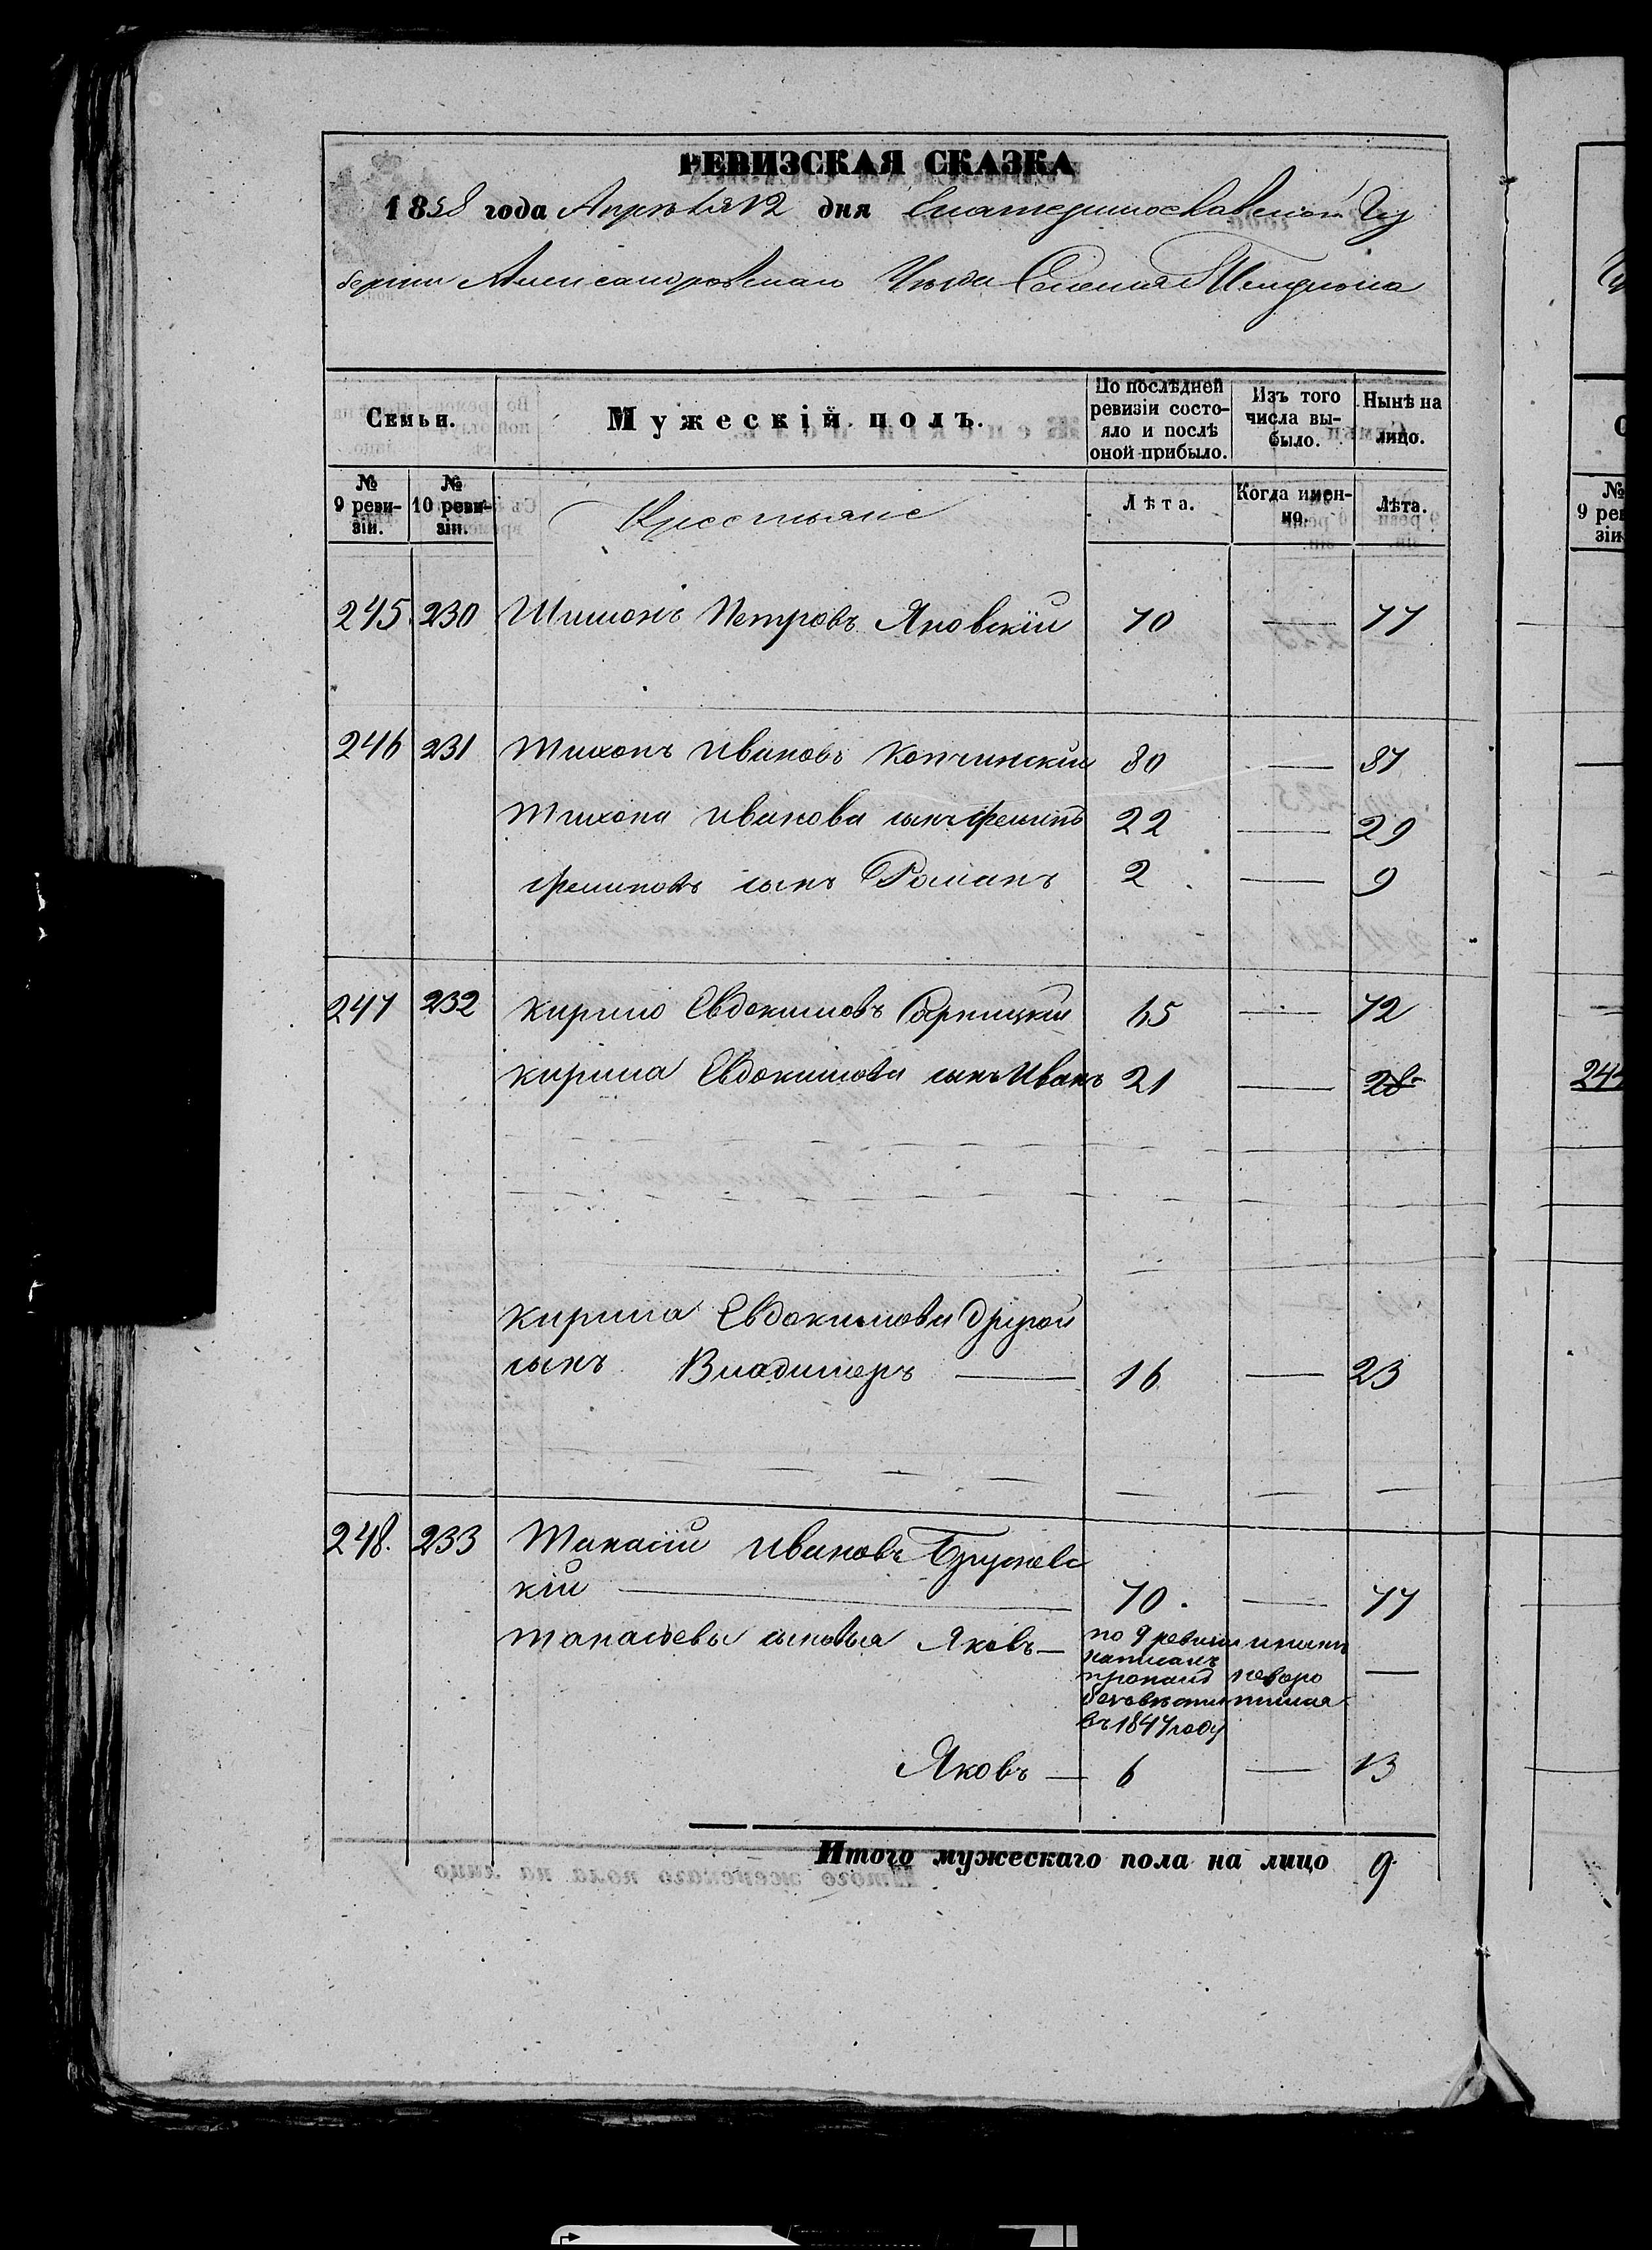 РЕВИЗСКАЯ СКАЗКА
1858 года Апреля 12 дня Екатеринославской Гу
берніи Александровскаго Уѣзда Селенія
Семьи.
Мужескій полъ.
По послѣдней ревизіи состояло и послѣ оной прибыло.
Изъ того числа выбыло.
Нынѣ на лицо.
№ 9 ревизіи.
№ 10 ревизіи.
Крестьяне
Лѣта.
Когда именно.
Лѣта.
245. 230 Шимонъ Петровъ Яновскій 70 — 77
246 231 Тихонъ Ивановъ Копчинскій 80 — 87
Тихона Иванова сынъ 22 — 29
сынъ Романъ 2 — 9
247 232 Кирило Евдокимовъ 65 — 72
Кирила Евдокимова сынъ Иванъ 21 — 28
Кирила Евдокимова другой
сынъ Владимеръ — 16 — 23
248. 233 Танасій Ивановъ
кій — 70. — 77
Танасіевы сыновья Яковъ — по 9 ревизіи
написанъ
—
въ 1847 году
Яковъ — 6 — 13
Итого мужескаго пола на лицо 9
№
9 рев
зіи